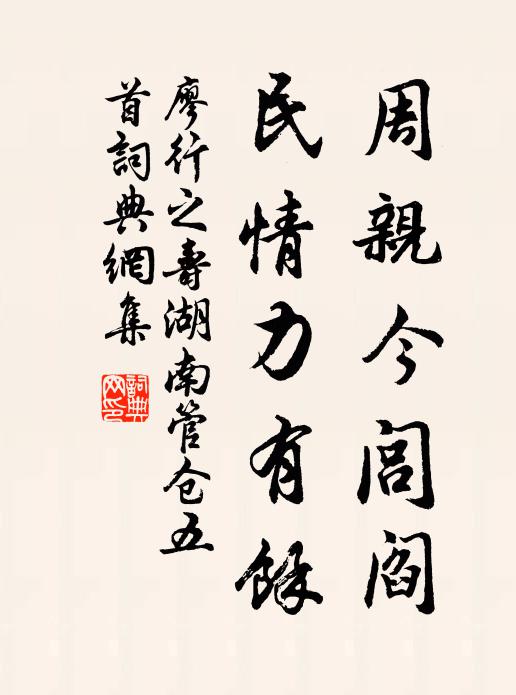 周親今閭閻
民情力有餘
廖行之壽湖南管仓五
首詞典網集
詞典
网印